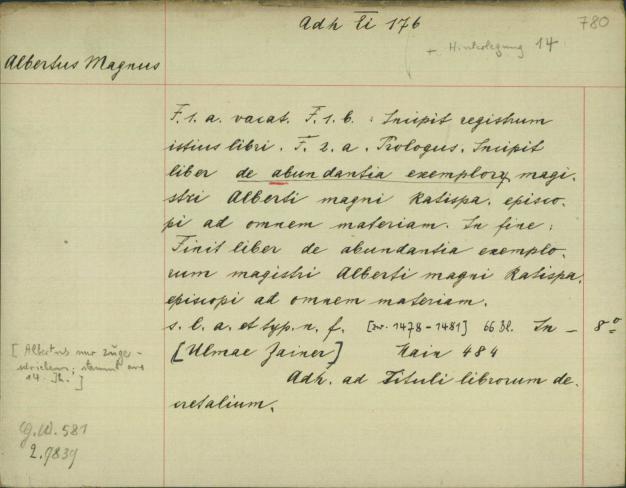 Adh Ti 176
780
+ Hinterlegung 14
Albertus Magnus
F. 1. a. vacat. F. 1. b. : Incipit registrum
istius libri. F. 2. a. Prologus. Incipit
liber de abundantia exemplorꝝ magi-
stri Alberti magni Ratispa. episco-
pi ad omnem materiam. In fine:
Finit liber de abundantia exemplo-
rum magistri Alberti magni Ratispa.
episcopi ad omnem materiam.
s. l. a. et typ. n. f. [zw. 1478-1481] 66 Bl. In – 8°
[Ulmae Zainer] Hain 484
Adh. ad Tituli librorum de-
cretalium.
[Albertus nur zuge-
schrieben; stammt aus
14. Jh.]
G.W. 581
2.9839